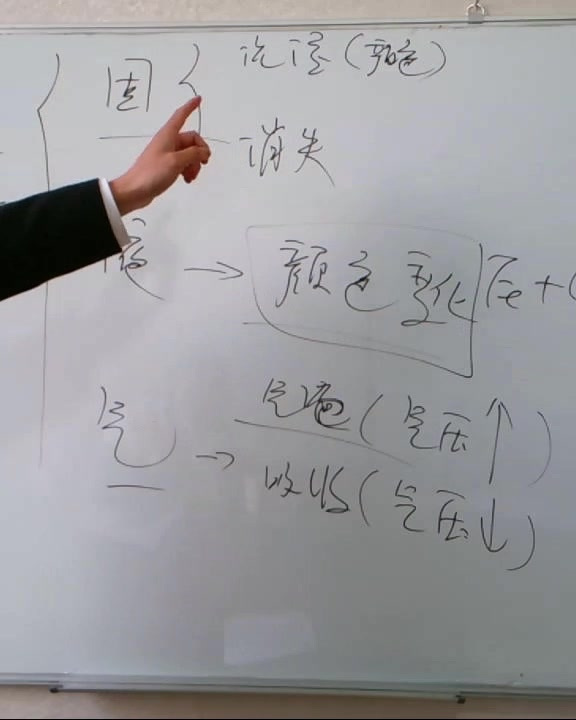 固 沉淀(颜色)
消失
液 → 颜色变化 Fe + C
气 → 气泡(气压↑)
吸收(气压↓)